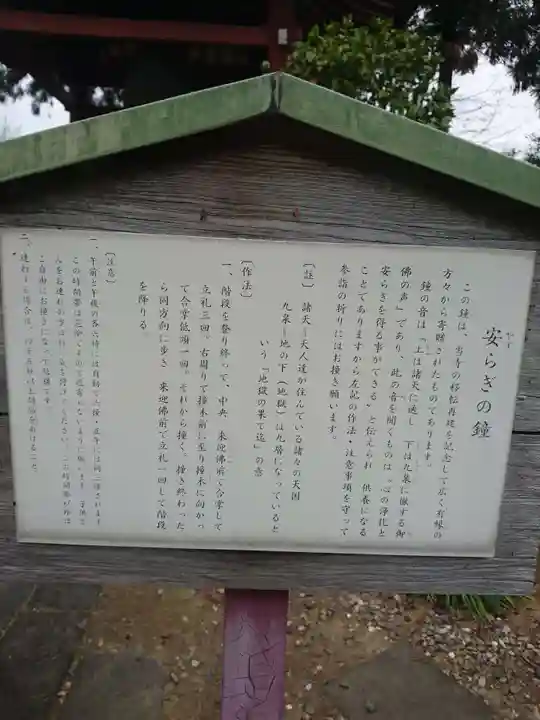 安らぎの鐘
やす
この鐘は、当寺の移転再建を記念して広く有縁の
方々から寄贈されたものであります。
鐘の音は「上は諸天に通し 下は九泉に徹する御
佛の声」であり、此の音を聞くものは、心の浄化と
安らぎを得る事ができる、と伝えられ 供養になる
ことでありますから左記の作法・注意事項を守って
参詣の折りにはお撞き願います。
〔註〕 諸天―天人達が住んでいる諸々の天国
九泉―地の下(地獄)は九層になっていると
いう「地獄の果て迄」の意
〔作法〕
一、階段を登り終って、中央、来迎佛前で合掌して
立礼三回。右周りで撞木前に至り撞木に向かっ
て合掌低頭一回。それから撞く。撞き終わった
ら同方向に歩き 来迎佛前で立礼一回して階段
を降りる。
〔注意〕
一、午前と午後の各六時には自動で六回・正午には
この時間帯は
ご自由にお撞きになって結構です。
二、連打する場合は、